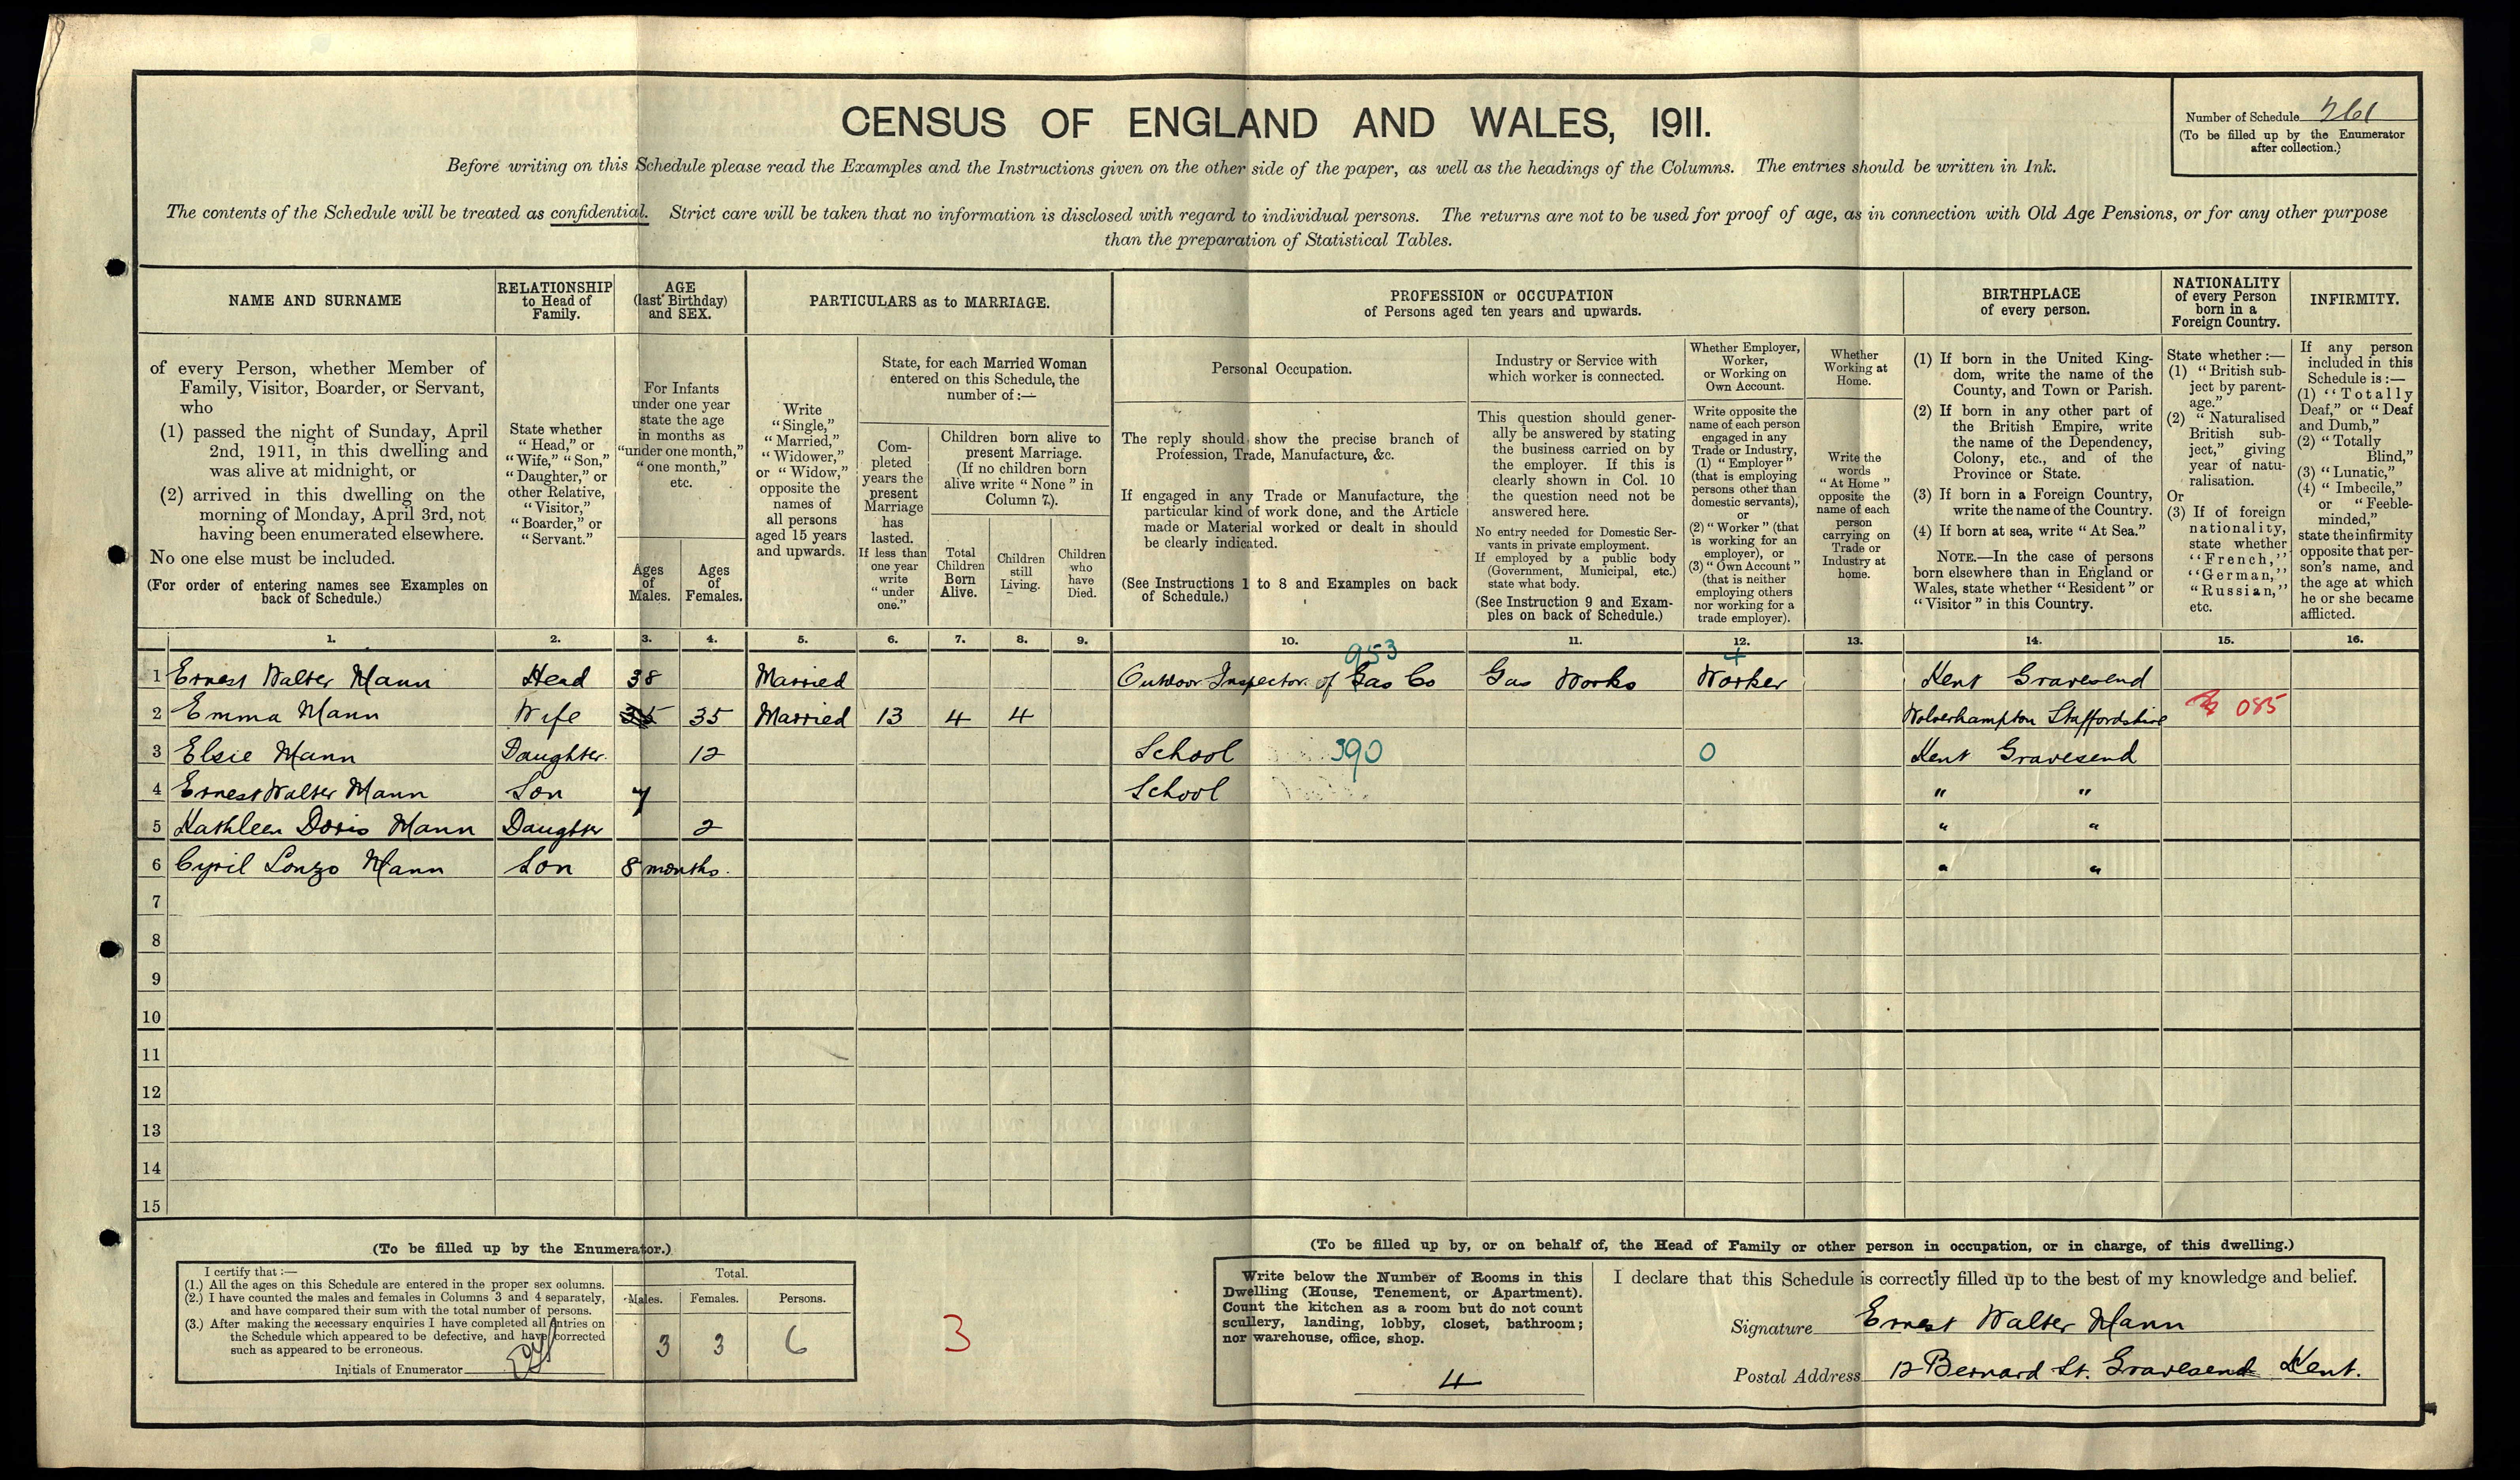 CENSUS OF ENGLAND AND WALES, 1911.
Number of Schedule 261
(To be filled up by the Enumerator
after collection.)
Before writing on this Schedule please read the Examples and the Instructions given on the other side of the paper, as well as the headings of the Columns. The entries should be written in Ink.
The contents of the Schedule will be treated as confidential. Strict care will be taken that no information is disclosed with regard to individual persons. The returns are not to be used for proof of age, as in connection with Old Age Pensions, or for any other purpose
than the preparation of Statistical Tables.
NAME AND SURNAME
of every Person, whether Member of
Family, Visitor, Boarder, or Servant,
who
(1) passed the night of Sunday, April
2nd, 1911, in this dwelling and
was alive at midnight, or
(2) arrived in this dwelling on the
morning of Monday, April 3rd, not
having been enumerated elsewhere.
No one else must be included.
(For order of entering names see Examples on
back of Schedule.)
RELATIONSHIP
to Head of
Family.
State whether
"Head," or
"Wife," "Son,"
"Daughter," or
other Relative,
"Visitor,"
"Boarder," or
"Servant."
AGE
(last Birthday)
and SEX.
For Infants
under one year
state the age
in months as
"under one month,"
"one month,"
etc.
Ages
of
Males.
Ages
of
Females.
PARTICULARS as to MARRIAGE.
Write
"Single,"
"Married,"
"Widower,"
or "Widow,"
opposite the
names of
all persons
aged 15 years
and upwards.
State, for each Married Woman
entered on this Schedule, the
number of :—
Com-
pleted
years the
present
Marriage
has
lasted.
If less than
one year
write
"under
one."
Children born alive to
present Marriage.
(If no children born
alive write "None" in
Column 7.)
Total
Children
Born
Alive.
Children
still
Living.
Children
who
have
Died.
PROFESSION or OCCUPATION
of Persons aged ten years and upwards.
Personal Occupation.
The reply should show the precise branch of
Profession, Trade, Manufacture, &c.
If engaged in any Trade or Manufacture, the
particular kind of work done, and the Article
made or Material worked or dealt in should
be clearly indicated.
(See Instructions 1 to 8 and Examples on back
of Schedule.)
Industry or Service with
which worker is connected.
This question should gener-
ally be answered by stating
the business carried on by
the employer. If this is
clearly shown in Col. 10
the question need not be
answered here.
No entry needed for Domestic Ser-
vants in private employment.
If employed by a public body
(Government, Municipal, etc.)
state what body.
(See Instruction 9 and Exam-
ples on back of Schedule.)
Whether Employer,
Worker,
or Working on
Own Account.
Write opposite the
name of each person
engaged in any
Trade or Industry,
(1) "Employer"
(that is employing
persons other than
domestic servants),
or
(2) "Worker" (that
is working for an
employer), or
(3) "Own Account"
(that is neither
employing others
nor working for a
trade employer).
Whether
Working at
Home.
Write the
words
"At Home"
opposite the
name of each
person
carrying on
Trade or
Industry at
home.
BIRTHPLACE
of every person.
(1) If born in the United King-
dom, write the name of the
County, and Town or Parish.
(2) If born in any other part of
the British Empire, write
the name of the Dependency,
Colony, etc., and of the
Province or State.
(3) If born in a Foreign Country,
write the name of the Country.
(4) If born at sea, write "At Sea."
NOTE.—In the case of persons
born elsewhere than in England or
Wales, state whether "Resident" or
"Visitor" in this Country.
NATIONALITY
of every Person
born in a
Foreign Country.
State whether :—
(1) "British sub-
ject by parent-
age."
(2) "Naturalised
British sub-
ject," giving
year of natu-
ralisation.
Or
(3) If of foreign
nationality,
state whether
"French,"
"German,"
"Russian,"
etc.
INFIRMITY.
If any person
included in this
Schedule is :—
(1) "Totally
Deaf," or "Deaf
and Dumb,"
(2) "Totally
Blind,"
(3) "Lunatic,"
(4) "Imbecile,"
or "Feeble-
minded,"
state the infirmity
opposite that per-
son's name, and
the age at which
he or she became
afflicted.
1. 2. 3. 4. 5. 6. 7. 8. 9. 10. 11. 12. 13. 14. 15. 16.
953 4
1 Ernest Walter Mann Head 38 Married Outdoor Inspector of Gas Co Gas Works Worker Kent Gravesend
2 Emma Mann Wife 35 35 Married 13 4 4 Wolverhampton Staffordshire 085
3 Elsie Mann Daughter. 12 School 390 0 Kent Gravesend
4 Ernest Walter Mann Son 7 School " "
5 Kathleen Doris Mann Daughter 2 " "
6 Cyril Lonzo Mann Son 8 months. " "
7
8
9
10
11
12
13
14
15
(To be filled up by the Enumerator.)
I certify that :—
(1.) All the ages on this Schedule are entered in the proper sex columns.
(2.) I have counted the males and females in Columns 3 and 4 separately,
and have compared their sum with the total number of persons.
(3.) After making the necessary enquiries I have completed all entries on
the Schedule which appeared to be defective, and have corrected
such as appeared to be erroneous.
Initials of Enumerator
Total.
Males. Females. Persons.
3 3 6
3
(To be filled up by, or on behalf of, the Head of Family or other person in occupation, or in charge, of this dwelling.)
Write below the Number of Rooms in this
Dwelling (House, Tenement, or Apartment).
Count the kitchen as a room but do not count
scullery, landing, lobby, closet, bathroom;
nor warehouse, office, shop.
4
I declare that this Schedule is correctly filled up to the best of my knowledge and belief.
Signature Ernest Walter Mann
Postal Address 12 Bernard St. Gravesend Kent.